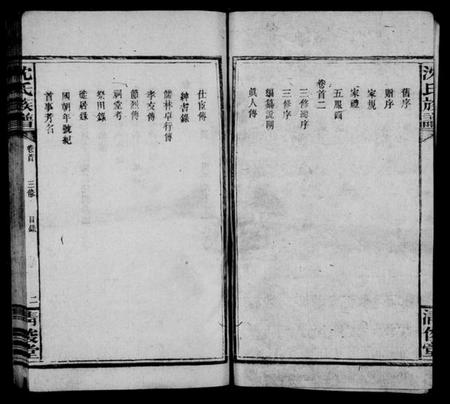 沈氏族譜
舊序
贈序
家規
家禮
五服圖
卷首二
三修序
三修序
編纂說
真人傳
仕宦傳
儒林卓行傳
孝友傳
節烈傳
祠堂考
祭田錄
徙居錄
國朝年號紀
首事芳名
沈氏族譜
卷首
三修
目錄
二